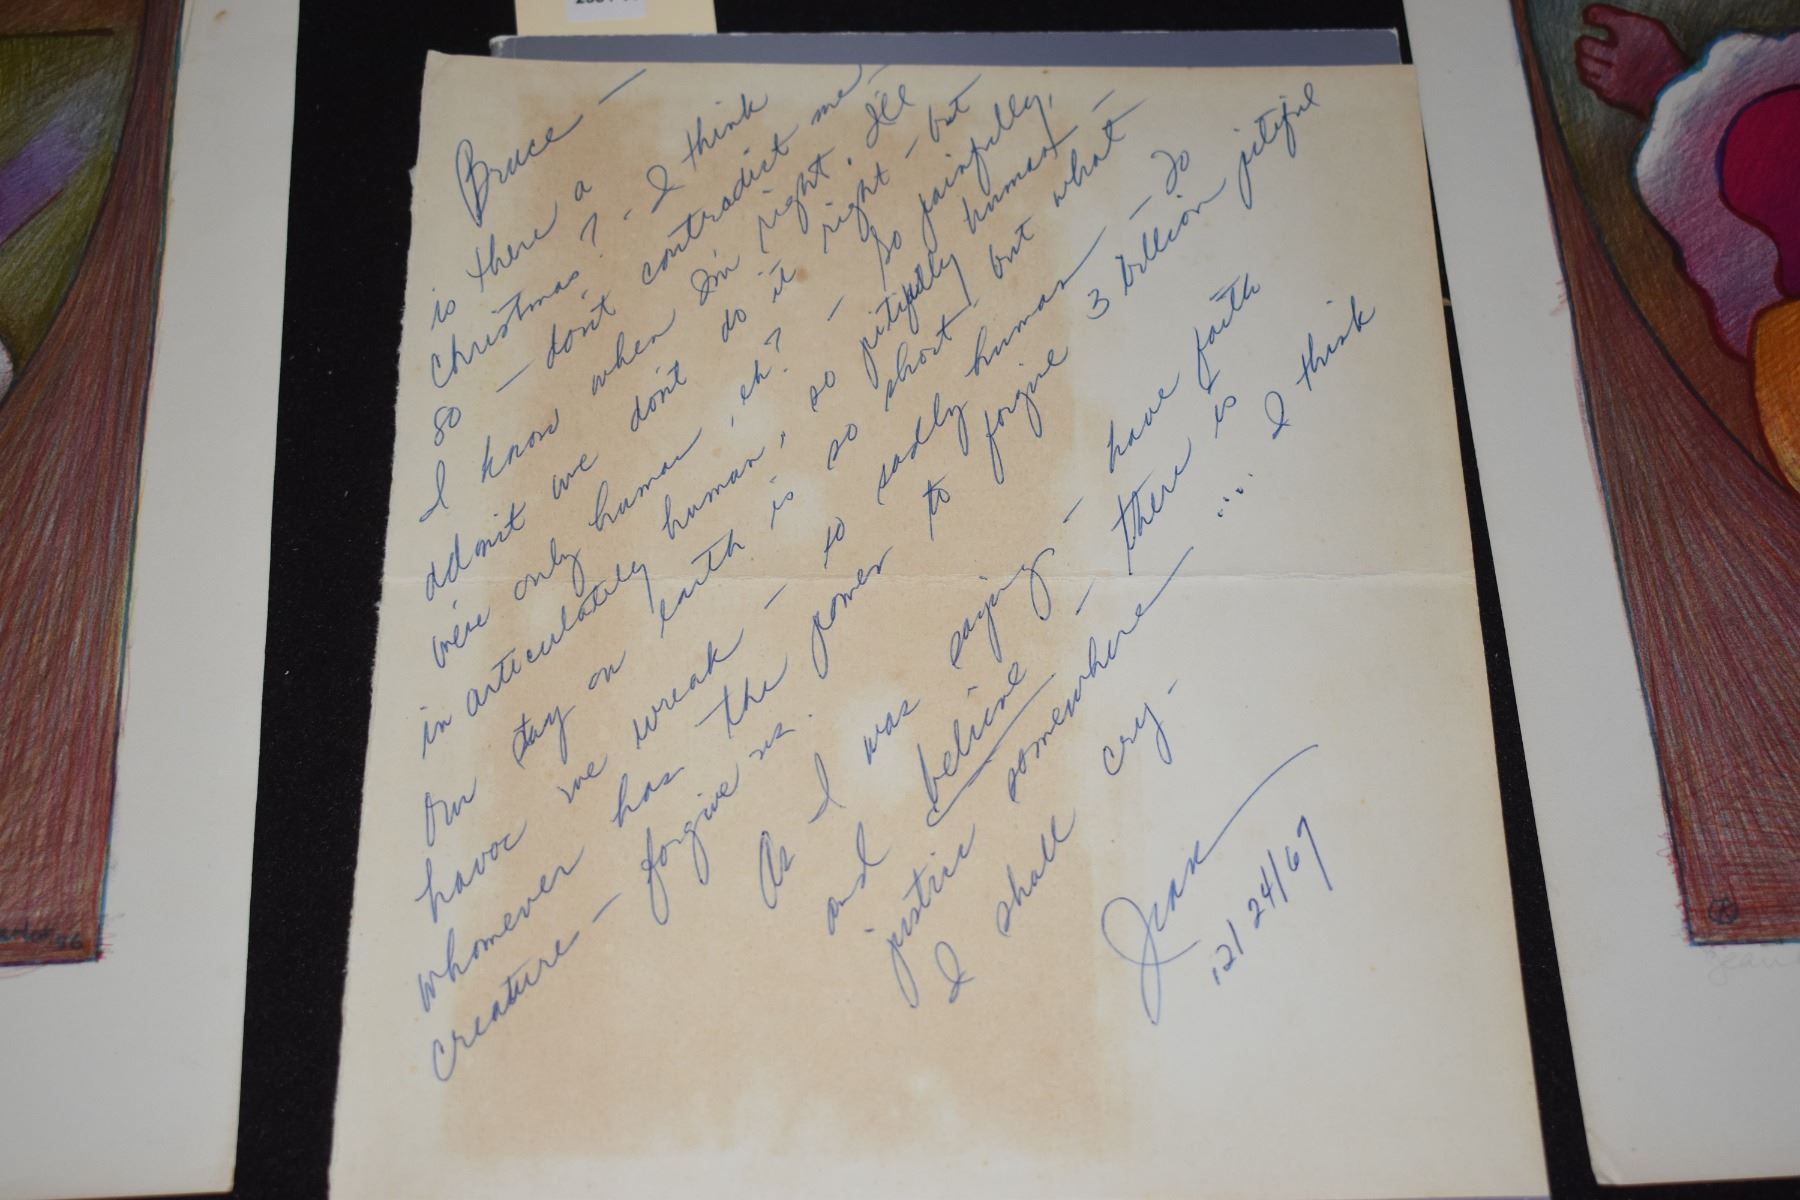 Bruce —
is there a
christmas? - I think
so — don't contradict me —
I know when I'm right. I'll
admit we don't do it right - but
we're only human, eh? — So painfully,
in articulately human, so pitifully human —
Our stay on earth is so short, but what
havoc we wreak — to sadly human — To
whomever has the power to forgive 3 billion pitiful
creature — forgive us.
As I was saying — have faith
and believe — there is
justice somewhere ... I think
I shall cry —
Jean
12/24/67